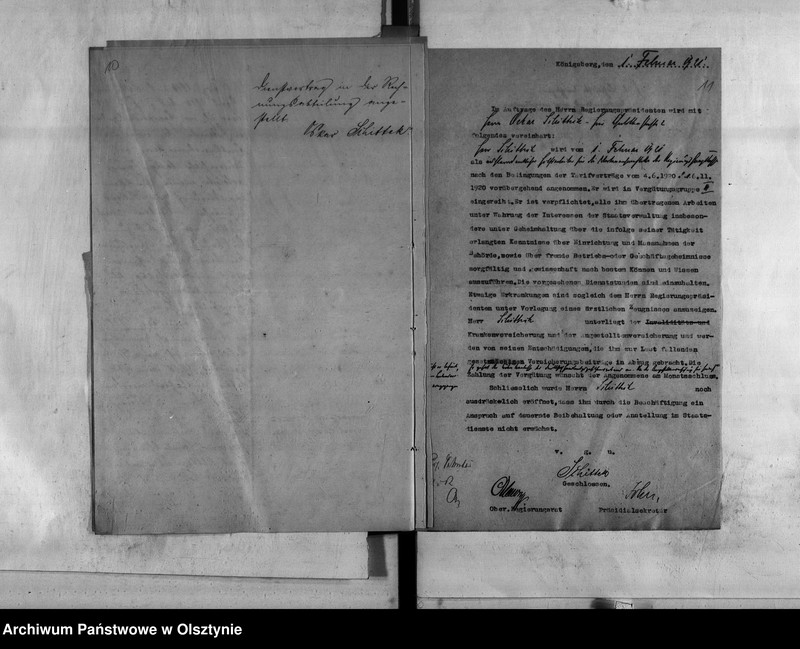 10
Dienstvertrag in der Rech-
nungsabteilung ange-
stellt.
Oskar Schittek
Königsberg, den 1. Februar 1921.
11
Im Auftrage des Herrn Regierungspräsidenten wird mit
Herrn Oskar Schittek
folgendes vereinbart:
Herr Schittek wird vom 1. Februar 1921
als
nach den Bedingungen der Tarifverträge vom 4.6.1920 6.11.
1920 vorübergehend angenommen. Er wird in Vergütungsgruppe
eingereiht. Er ist verpflichtet, alle ihm übertragenen Arbeiten
unter Wahrung der Interessen der Staatsverwaltung insbeson-
dere unter Geheimhaltung über die infolge seiner Tätigkeit
erlangten Kenntnisse über Einrichtung und Massnahmen der
Behörde, sowie über fremde Betriebs-oder Geschäftsgeheimnisse
sorgfältig und gewissenhaft nach bestem Können und Wissen
auszuführen. Die vorgesehenen Dienststunden sind einzuhalten.
Etwaige Erkrankungen sind sogleich dem Herrn Regierungspräsi-
denten unter Vorlegung eines ärztlichen Zeugnisses anzuzeigen.
Herr Schittek unterliegt der Invaliditäts-und
Krankenversicherung und der Angestelltenversicherung und wer-
den von seinen Entschädigungen, die ihm zur Last fallenden
gesetzlichen Versicherungsbeiträge in Abzug gebracht. Die
Zahlung der Vergütung wünscht der Angenommene am Monatsschluss.
Schliesslich wurde Herrn Schittek noch
ausdrücklich eröffnet, dass ihm durch die Beschäftigung ein
Anspruch auf dauernde Beibehaltung oder Anstellung im Staats-
dienste nicht erwächst.
v. g. u.
Schittek
Geschlossen.
Ober.Regierungsrat Präsidialsekretär
Archiwum Państwowe w Olsztynie